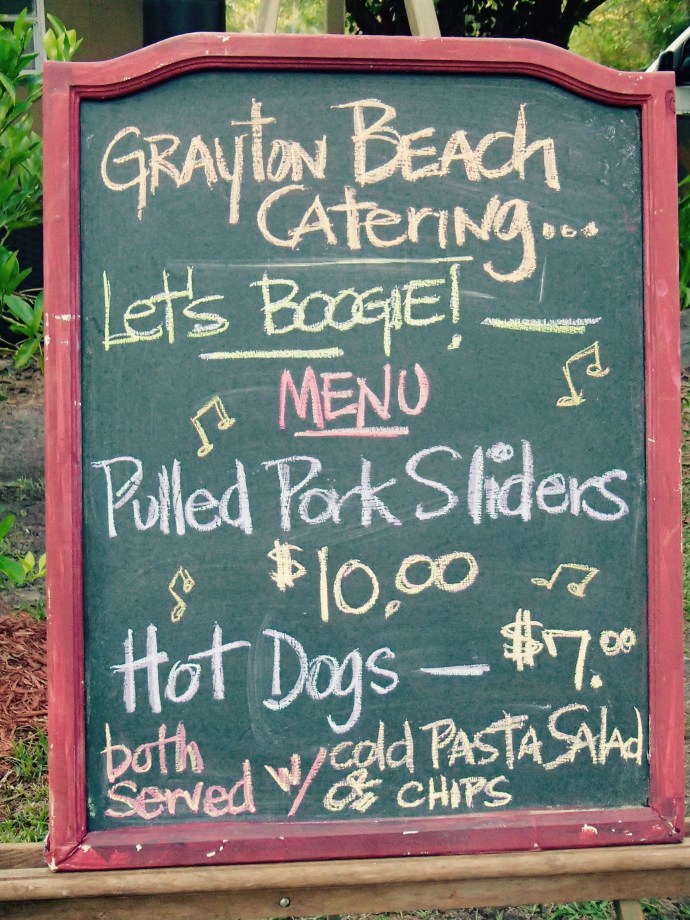 Grayton Beach
Catering...
Let's Boogie!
MENU
Pulled Pork Sliders
$10.00
Hot Dogs — $7.00
both served w/ cold Pasta Salad
& CHIPS